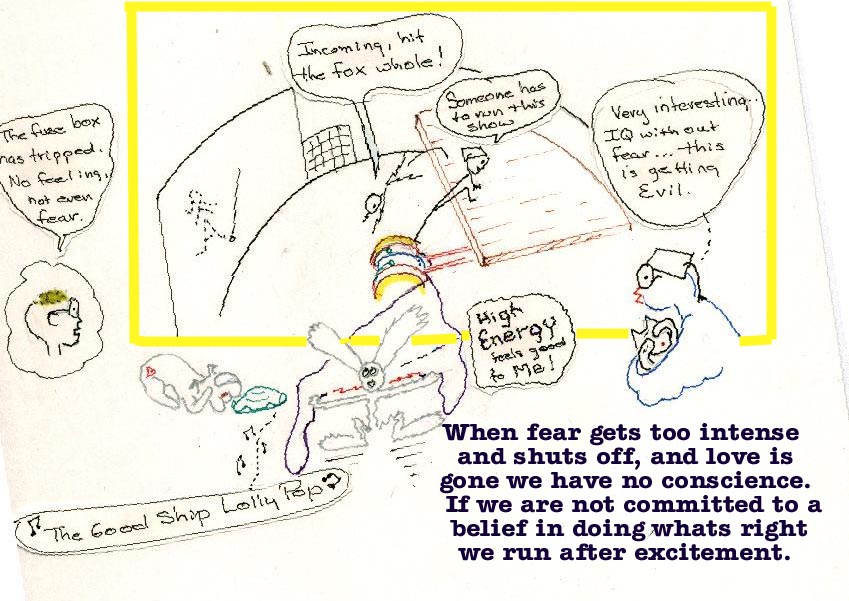 Incoming, hit
the fox whole!
Someone has
to run this
show
The fuse box
has tripped.
No feeling,
not even
fear.
Very interesting..
IQ with out
fear... this
is getting
Evil.
High
Energy
feels good
to ME!
The Good Ship Lolly Pop
When fear gets too intense
and shuts off, and love is
gone we have no conscience.
If we are not committed to a
belief in doing whats right
we run after excitement.